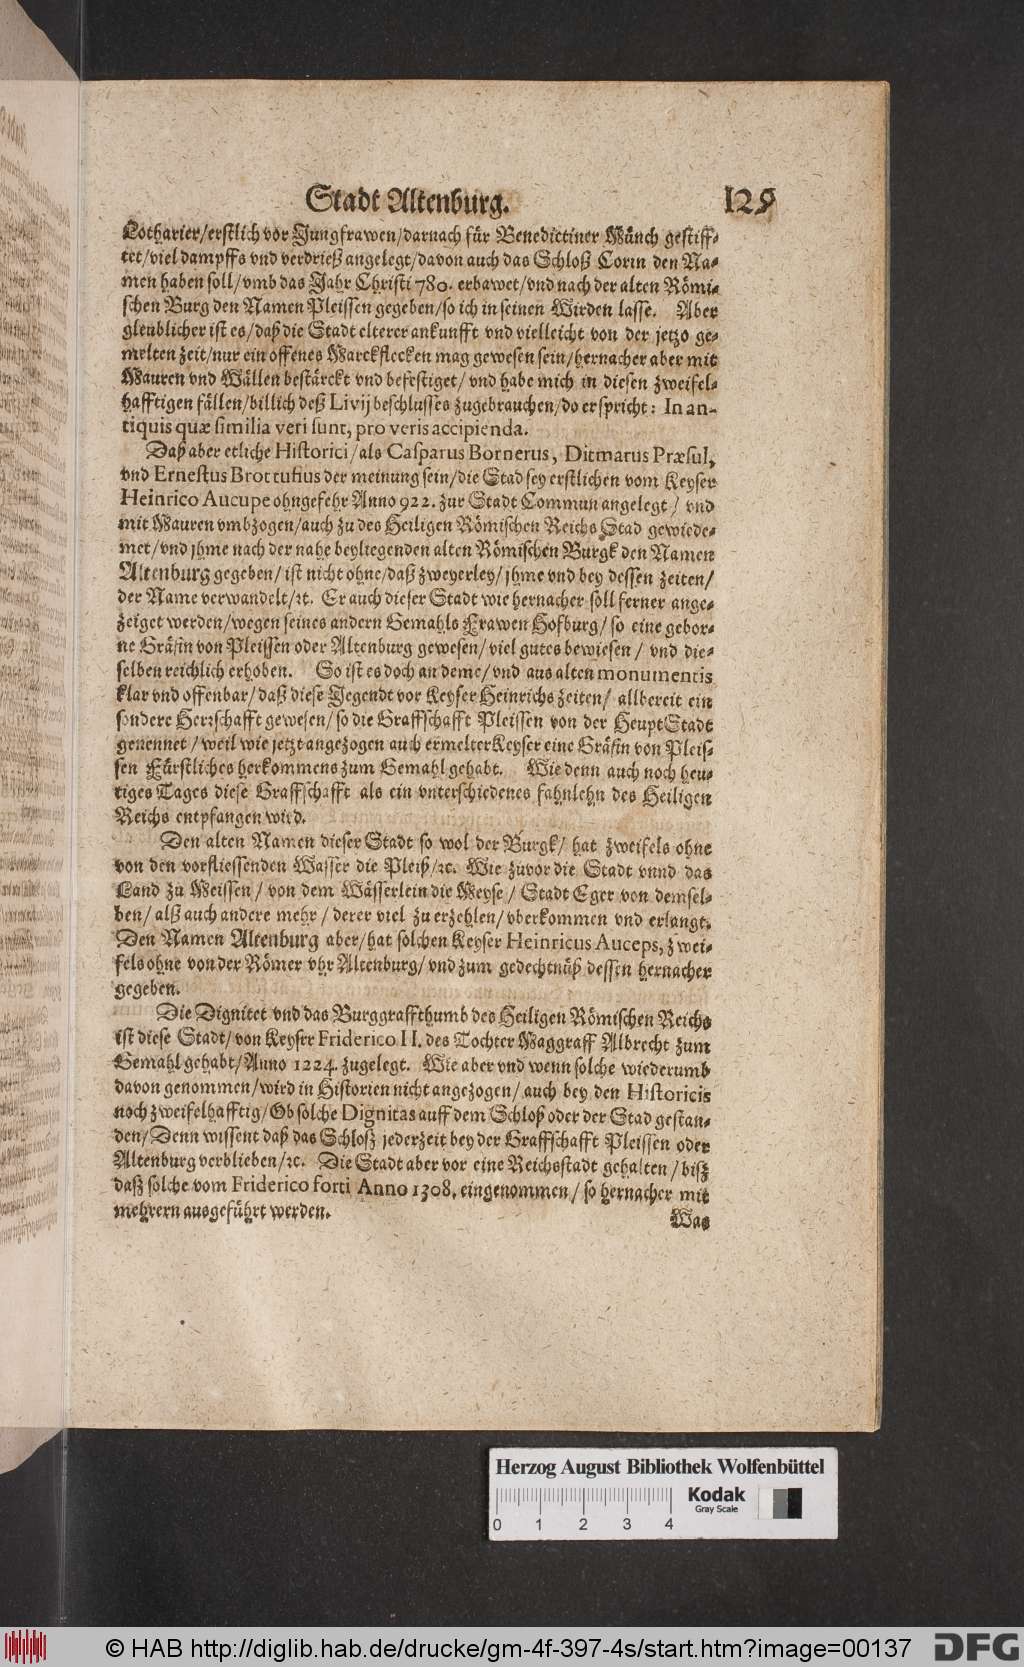 Stadt Altenburg. 129
Lotharier/erstlich vor Jungfrawen/darnach für Benedictiner Münch gestiff-
tet/viel dampffs vnd verdrieß angelegt/davon auch das Schloß Corin den Na-
men haben soll/vmb das Jahr Christi 780. erbawet/vnd nach der alten Römi-
schen Burg den Namen Pleissen gegeben/so ich in seinen Wirden lasse. Aber
gleublicher ist es/daß die Stadt elterer ankunfft vnd vielleicht von der jetzo ge-
melten zeit/nur ein offenes Marckflecken mag gewesen sein/hernacher aber mit
Mauren vnd Wällen bestärckt vnd befestiget/vnd habe mich in diesen zweifel-
hafftigen fällen/billich deß Livij beschlusses zugebrauchen/do er spricht: In an-
tiquis quæ similia veri sunt, pro veris accipienda.
Daß aber etliche Historici/als Casparus Bornerus, Ditmarus Præsul,
vnd Ernestus Brottufius der meinung sein/die Stad sey erstlichen vom Keyser
Heinrico Aucupe ohngefehr Anno 922. zur Stadt Commun angelegt/vnd
mit Mauren vmbzogen/auch zu des Heiligen Römischen Reichs Stad gewiede-
met/vnd jhme nach der nahe beyliegenden alten Römischen Burgk den Namen
Altenburg gegeben/ist nicht ohne/daß zweyerley/jhme vnd bey dessen zeiten/
der Name verwandelt/ꝛc. Er auch dieser Stadt wie hernacher soll ferner ange-
zeiget werden/wegen seines andern Gemahls Frawen Hofburg/so eine gebor-
ne Gräfin von Pleissen oder Altenburg gewesen/viel gutes bewiesen/vnd die-
selben reichlich erhoben. So ist es doch an deme/vnd aus alten monumentis
klar vnd offenbar/daß diese Jegendt vor Keyser Heinrichs zeiten/allbereit ein
sondere Herrschafft gewesen/so die Graffschafft Pleissen von der HeuptStadt
genennet/weil wie jetzt angezogen auch ermelter Keyser eine Gräfin von Pleis-
sen Fürstliches herkommens zum Gemahl gehabt. Wie denn auch noch heu-
tiges Tages diese Graffschafft als ein vnterschiedenes fahnlehn des Heiligen
Reichs entpfangen wird.
Den alten Namen dieser Stadt so wol der Burgk/hat zweifels ohne
von den vorfliessenden Wasser die Pleiß/ꝛc. Wie zuvor die Stadt vnnd das
Land zu Meissen/von dem Wässerlein die Meyse/Stadt Eger von demsel-
ben/alß auch andere mehr/derer viel zu erzehlen/vberkommen vnd erlangt.
Den Namen Altenburg aber/hat solchen Keyser Heinricus Auceps, zwei-
fels ohne von der Römer vhr Altenburg/vnd zum gedechtnüß dessen hernacher
gegeben.
Die Dignitet vnd das Burggraffthumb des Heiligen Römischen Reichs
ist diese Stadt/von Keyser Friderico II. des Tochter Maggraff Albrecht zum
Gemahl gehabt/Anno 1224. zugelegt. Wie aber vnd wenn solche wiederumb
davon genommen/wird in Historien nicht angezogen/auch bey den Historicis
noch zweifelhafftig/Ob solche Dignitas auff dem Schloß oder der Stad gestan-
den/Denn wissent daß das Schloß jederzeit bey der Graffschafft Pleissen oder
Altenburg verblieben/ꝛc. Die Stadt aber vor eine Reichsstadt gehalten/biß
daß solche vom Friderico forti Anno 1308. eingenommen/so hernacher mit
mehrern ausgeführt werden.
Was
Herzog August Bibliothek Wolfenbüttel
Kodak
Gray Scale
0 1 2 3 4
© HAB http://diglib.hab.de/drucke/gm-4f-397-4s/start.htm?image=00137
DFG